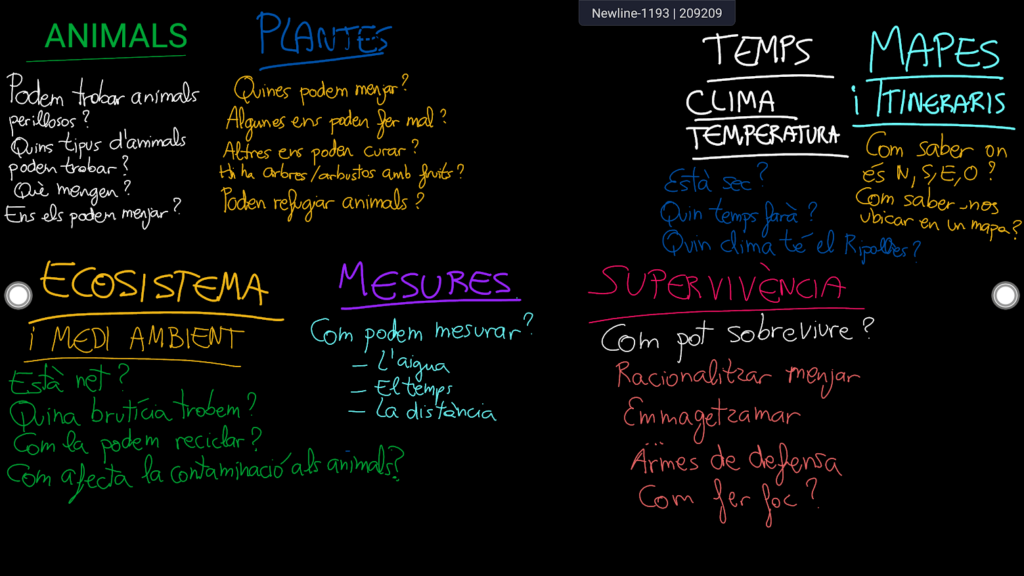 Newline-1193 | 209209
ANIMALS
Podem trobar animals
perillosos?
Quins tipus d'animals
podem trobar?
Què mengen?
Ens els podem menjar?
PLANTES
Quines podem menjar?
Algunes ens poden fer mal?
Altres ens poden curar?
Hi ha arbres/arbustos amb fruits?
Poden refugiar animals?
TEMPS
CLIMA
TEMPERATURA
Està sec?
Quin temps farà?
Quin clima té el Ripollès?
MAPES
i ITINERARIS
Com saber on
és N, S, E, O?
Com saber-nos
ubicar en un mapa?
ECOSISTEMA
i MEDI AMBIENT
Està net?
Quina brutícia trobem?
Com la podem reciclar?
Com afecta la contaminació als animals?
MESURES
Com podem mesurar?
- L'aigua
- El temps
- La distància
SUPERVIVÈNCIA
Com pot sobreviure?
Racionalitzar menjar
Emmagetzamar
Armes de defensa
Com fer foc?